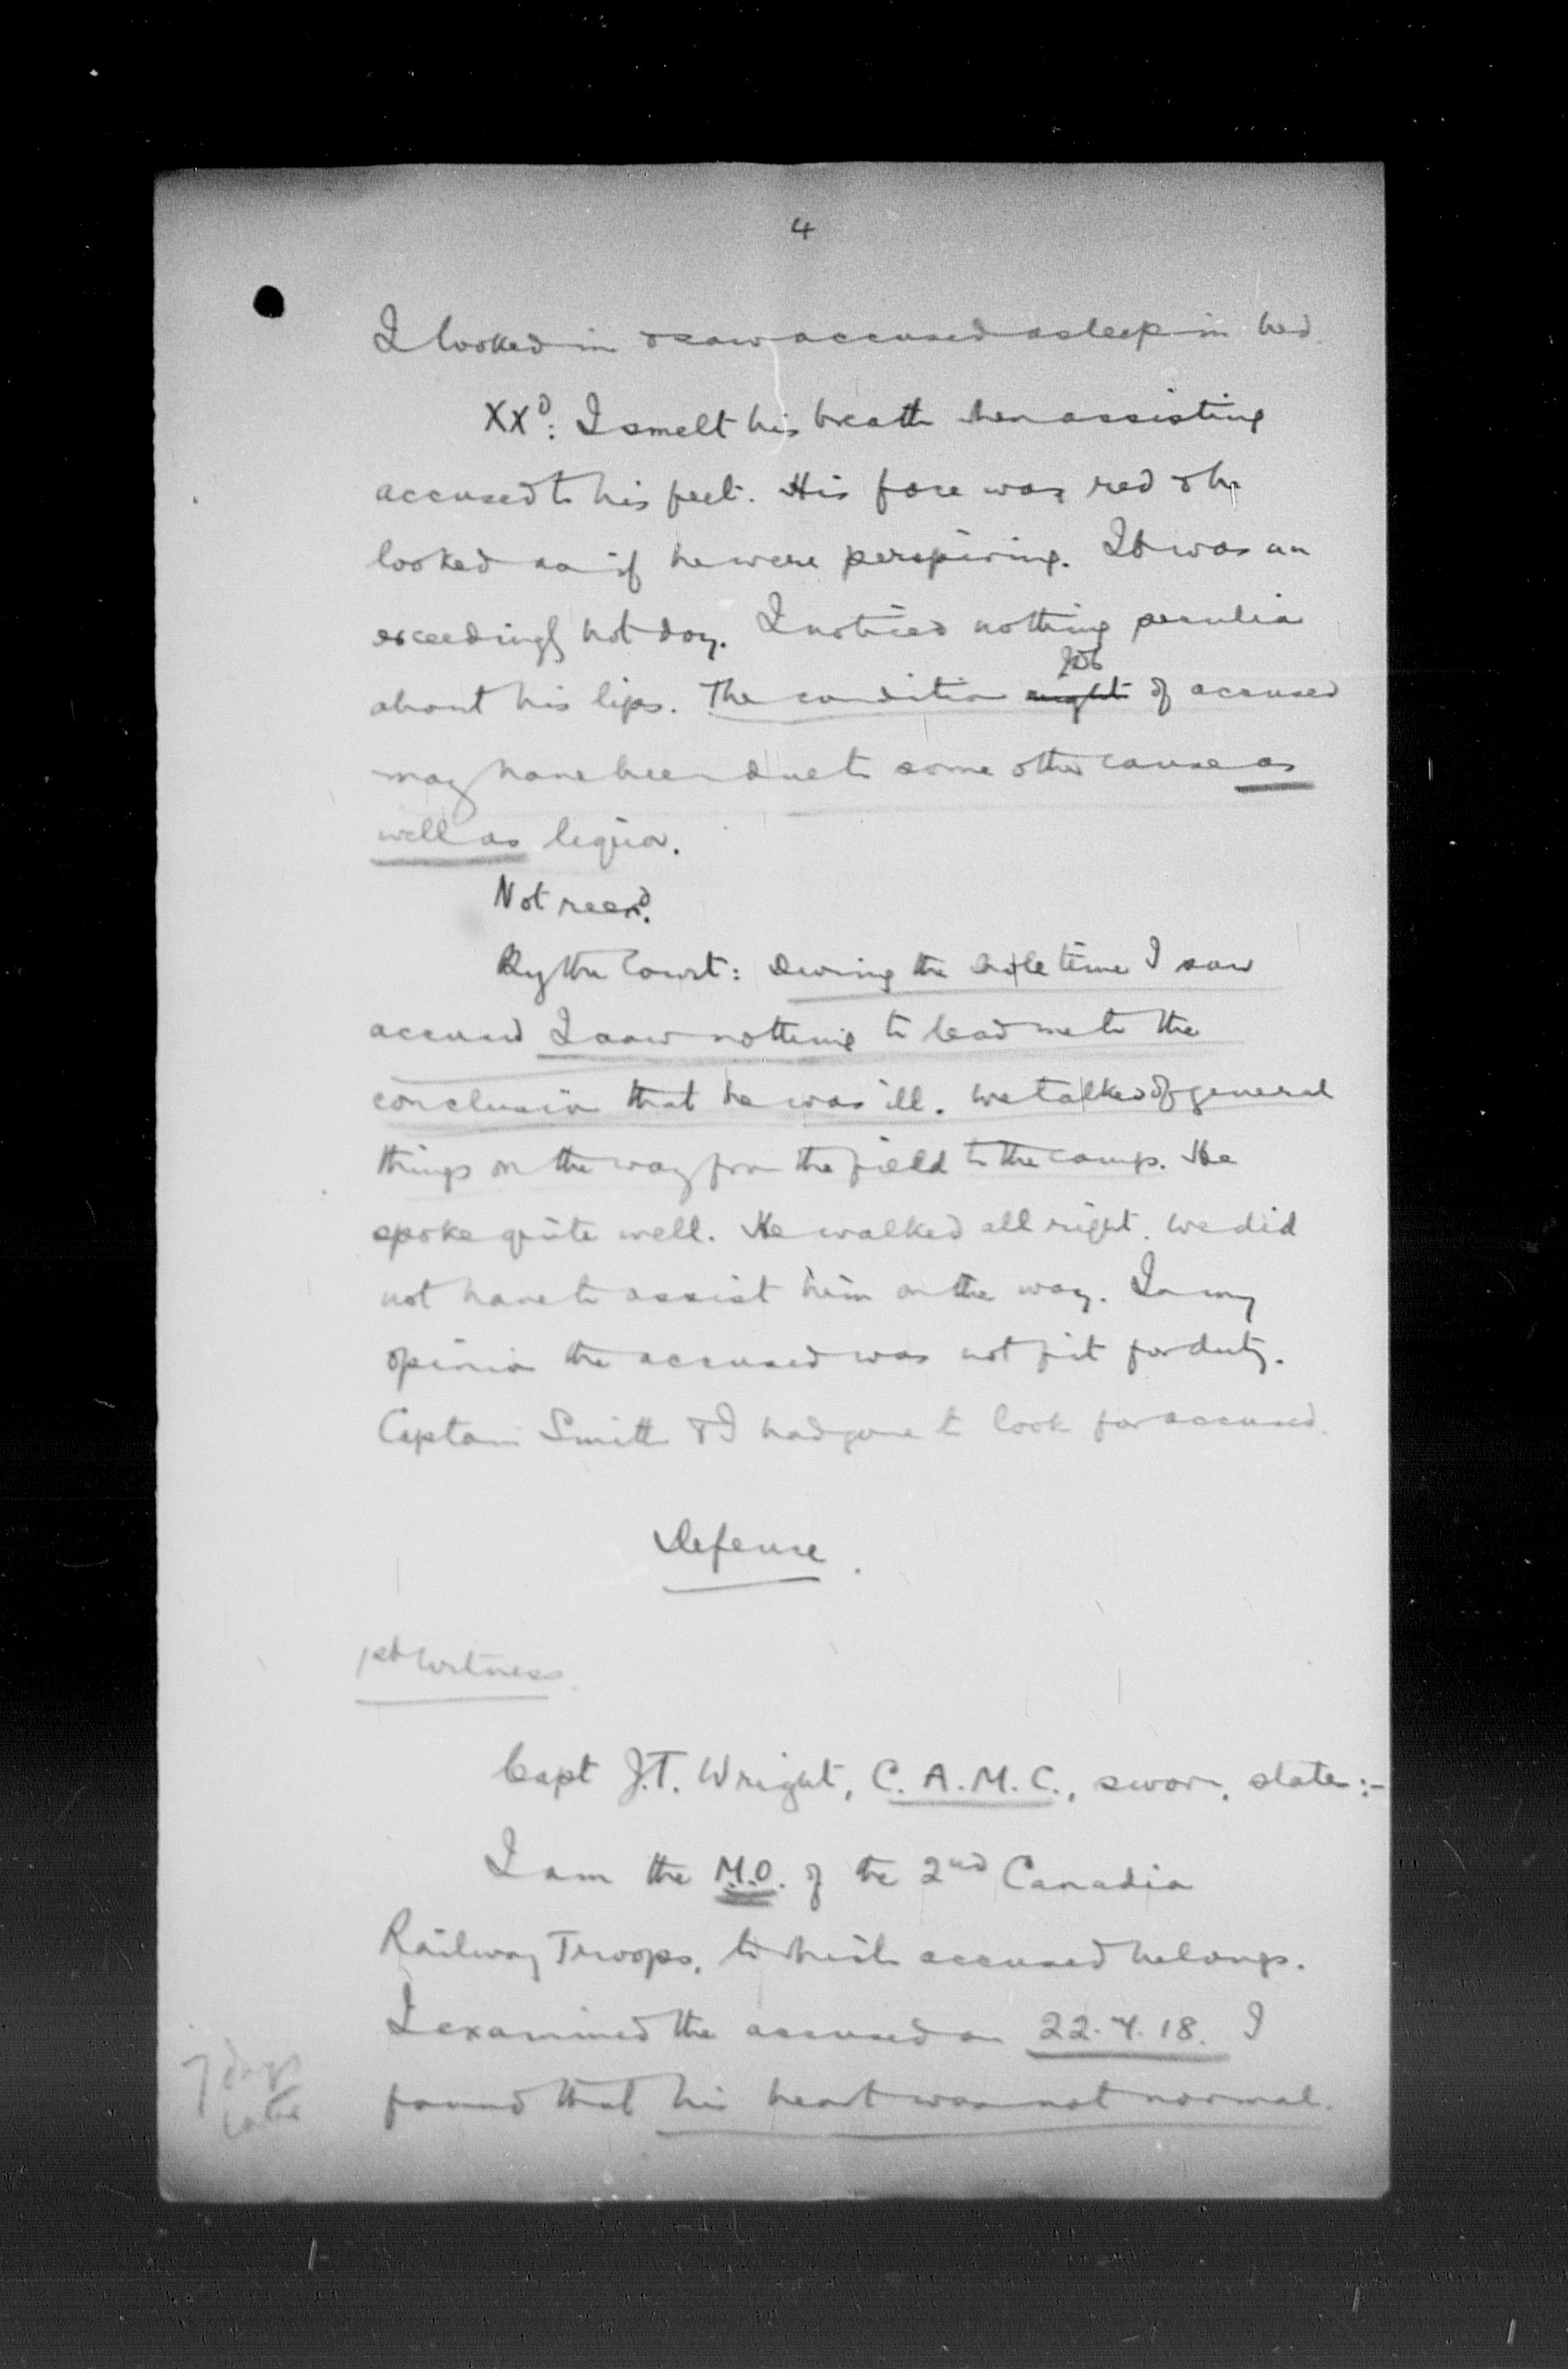 4
I looked in & saw accused asleep in bed.
XXd: I smelt his breath when assisting
accused to his feet. His face was red & he
looked as if he were perspiring. It was an
exceedingly hot day. I noticed nothing peculiar
about his lips. The condition might of accused
may have been due to some other cause as
well as liquor.
Not reexd.
By the Court: During the whole time I saw
accused I saw nothing to lead me to the
conclusion that he was ill. We talked of general
things on the way from the field to the camp. He
spoke quite well. He walked all right. We did
not have to assist him on the way. In my
opinion the accused was not fit for duty.
Captain Smith & I had gone to look for accused.
Defense.
1st Witness
Capt J.T. Wright, C.A.M.C., sworn, states:-
I am the M.O. of the 2nd Canadian
Railway Troops, to which accused belongs.
I examined the accused on 22.4.18. I
found that his heart was not normal.
7 days
later